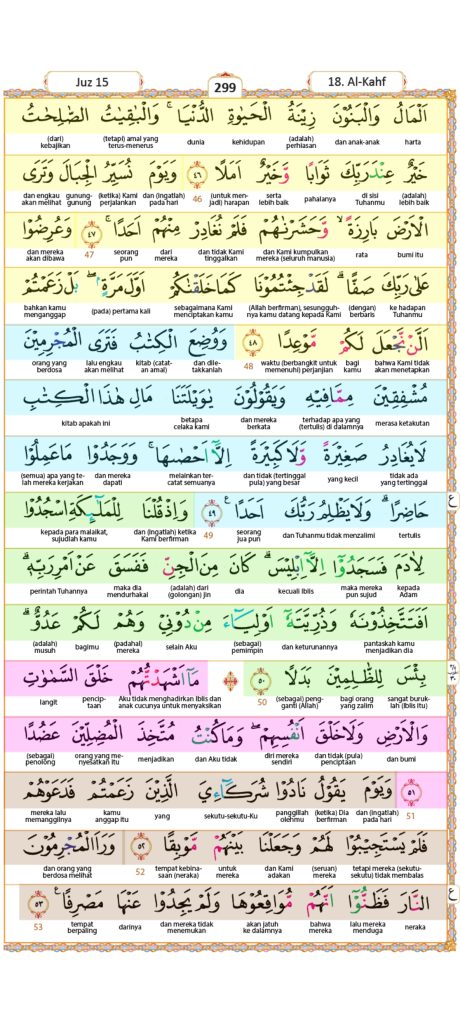 Juz 15
299
18. Al-Kahf
اَلْمَالُ وَالْبَنُوْنَ زِيْنَةُ الْحَيٰوةِ الدُّنْيَاۚ وَالْبٰقِيٰتُ الصّٰلِحٰتُ
harta dan anak-anak (adalah) perhiasan kehidupan dunia (tetapi) amal yang terus-menerus (dari) kebajikan
خَيْرٌ عِنْدَ رَبِّكَ ثَوَابًا وَّخَيْرٌ اَمَلًا ٤٦ وَيَوْمَ نُسَيِّرُ الْجِبَالَ وَتَرَى
(adalah) lebih baik di sisi Tuhanmu pahalanya serta lebih baik (untuk menjadi) harapan 46 dan (ingatlah) pada hari (ketika) Kami perjalankan gunung-gunung dan engkau akan melihat
الْاَرْضَ بَارِزَةًۙ وَّحَشَرْنٰهُمْ فَلَمْ نُغَادِرْ مِنْهُمْ اَحَدًاۚ ٤٧ وَعُرِضُوْا
bumi itu rata dan Kami kumpulkan mereka (seluruh manusia) dan tidak Kami tinggalkan dari mereka seorang pun 47 dan mereka akan dibawa
عَلٰى رَبِّكَ صَفًّاۗ لَقَدْ جِئْتُمُوْنَا كَمَا خَلَقْنٰكُمْ اَوَّلَ مَرَّةٍۢ ۖ بَلْ زَعَمْتُمْ
ke hadapan Tuhanmu (dengan) berbaris (Allah berfirman), sesungguhnya kamu datang kepada Kami sebagaimana Kami menciptakan kamu (pada) pertama kali bahkan kamu menganggap
اَلَّنْ نَّجْعَلَ لَكُمْ مَّوْعِدًا ٤٨ وَوُضِعَ الْكِتٰبُ فَتَرَى الْمُجْرِمِيْنَ
bahwa Kami tidak akan menetapkan bagi kamu waktu (berbangkit untuk memenuhi) perjanjian 48 dan diletakkanlah kitab (catatan amal) lalu engkau akan melihat orang yang berdosa
مُشْفِقِيْنَ مِمَّا فِيْهِ وَيَقُوْلُوْنَ يٰوَيْلَتَنَا مَالِ هٰذَا الْكِتٰبِ
merasa ketakutan terhadap apa yang (tertulis) di dalamnya dan mereka berkata betapa celaka kami kitab apakah ini
لَا يُغَادِرُ صَغِيْرَةً وَّلَا كَبِيْرَةً اِلَّآ اَحْصٰىهَاۚ وَوَجَدُوْا مَا عَمِلُوْا
tidak ada yang tertinggal yang kecil dan tidak (tertinggal pula) yang besar melainkan tercatat semuanya dan mereka dapati (semua) apa yang telah mereka kerjakan
حَاضِرًاۗ وَلَا يَظْلِمُ رَبُّكَ اَحَدًا ٤٩ وَاِذْ قُلْنَا لِلْمَلٰۤىِٕكَةِ اسْجُدُوْا
tertulis dan Tuhanmu tidak menzalimi seorang jua pun 49 dan (ingatlah) ketika Kami berfirman kepada para malaikat, sujudlah kamu
لِاٰدَمَ فَسَجَدُوْٓا اِلَّآ اِبْلِيْسَۗ كَانَ مِنَ الْجِنِّ فَفَسَقَ عَنْ اَمْرِ رَبِّهٖۗ
kepada Adam maka mereka pun sujud kecuali Iblis dia (adalah) dari (golongan) jin maka dia mendurhakai perintah Tuhannya
اَفَتَتَّخِذُوْنَهٗ وَذُرِّيَّتَهٗٓ اَوْلِيَاۤءَ مِنْ دُوْنِيْ وَهُمْ لَكُمْ عَدُوٌّۗ
pantaskah kamu menjadikan dia dan keturunannya (sebagai) pemimpin selain Aku (padahal) mereka bagimu (adalah) musuh
بِئْسَ لِلظّٰلِمِيْنَ بَدَلًا ٥٠ مَآ اَشْهَدْتُّهُمْ خَلْقَ السَّمٰوٰتِ
sangat buruklah (Iblis itu) bagi orang yang zalim (sebagai) pengganti (Allah) 50 Aku tidak menghadirkan Iblis dan anak cucunya untuk menyaksikan penciptaan langit
وَالْاَرْضِ وَلَا خَلْقَ اَنْفُسِهِمْۖ وَمَا كُنْتُ مُتَّخِذَ الْمُضِلِّيْنَ عَضُدًا
dan bumi dan tidak (pula) penciptaan diri mereka sendiri dan Aku tidak menjadikan orang yang menyesatkan itu (sebagai) penolong
٥١ وَيَوْمَ يَقُوْلُ نَادُوْا شُرَكَاۤءِيَ الَّذِيْنَ زَعَمْتُمْ فَدَعَوْهُمْ
51 dan (ingatlah) pada hari (ketika) Dia berfirman panggillah olehmu sekutu-sekutu-Ku yang kamu anggap itu mereka lalu memanggilnya
فَلَمْ يَسْتَجِيْبُوْا لَهُمْ وَجَعَلْنَا بَيْنَهُمْ مَّوْبِقًا ٥٢ وَرَاَ الْمُجْرِمُوْنَ
tetapi mereka (sekutu-sekutu) tidak membalas (seruan) mereka dan Kami adakan untuk mereka tempat kebinasaan (neraka) 52 dan orang yang berdosa melihat
النَّارَ فَظَنُّوْٓا اَنَّهُمْ مُّوَاقِعُوْهَا وَلَمْ يَجِدُوْا عَنْهَا مَصْرِفًا ٥٣
neraka lalu mereka menduga bahwa mereka akan jatuh ke dalamnya dan mereka tidak menemukan darinya tempat berpaling 53